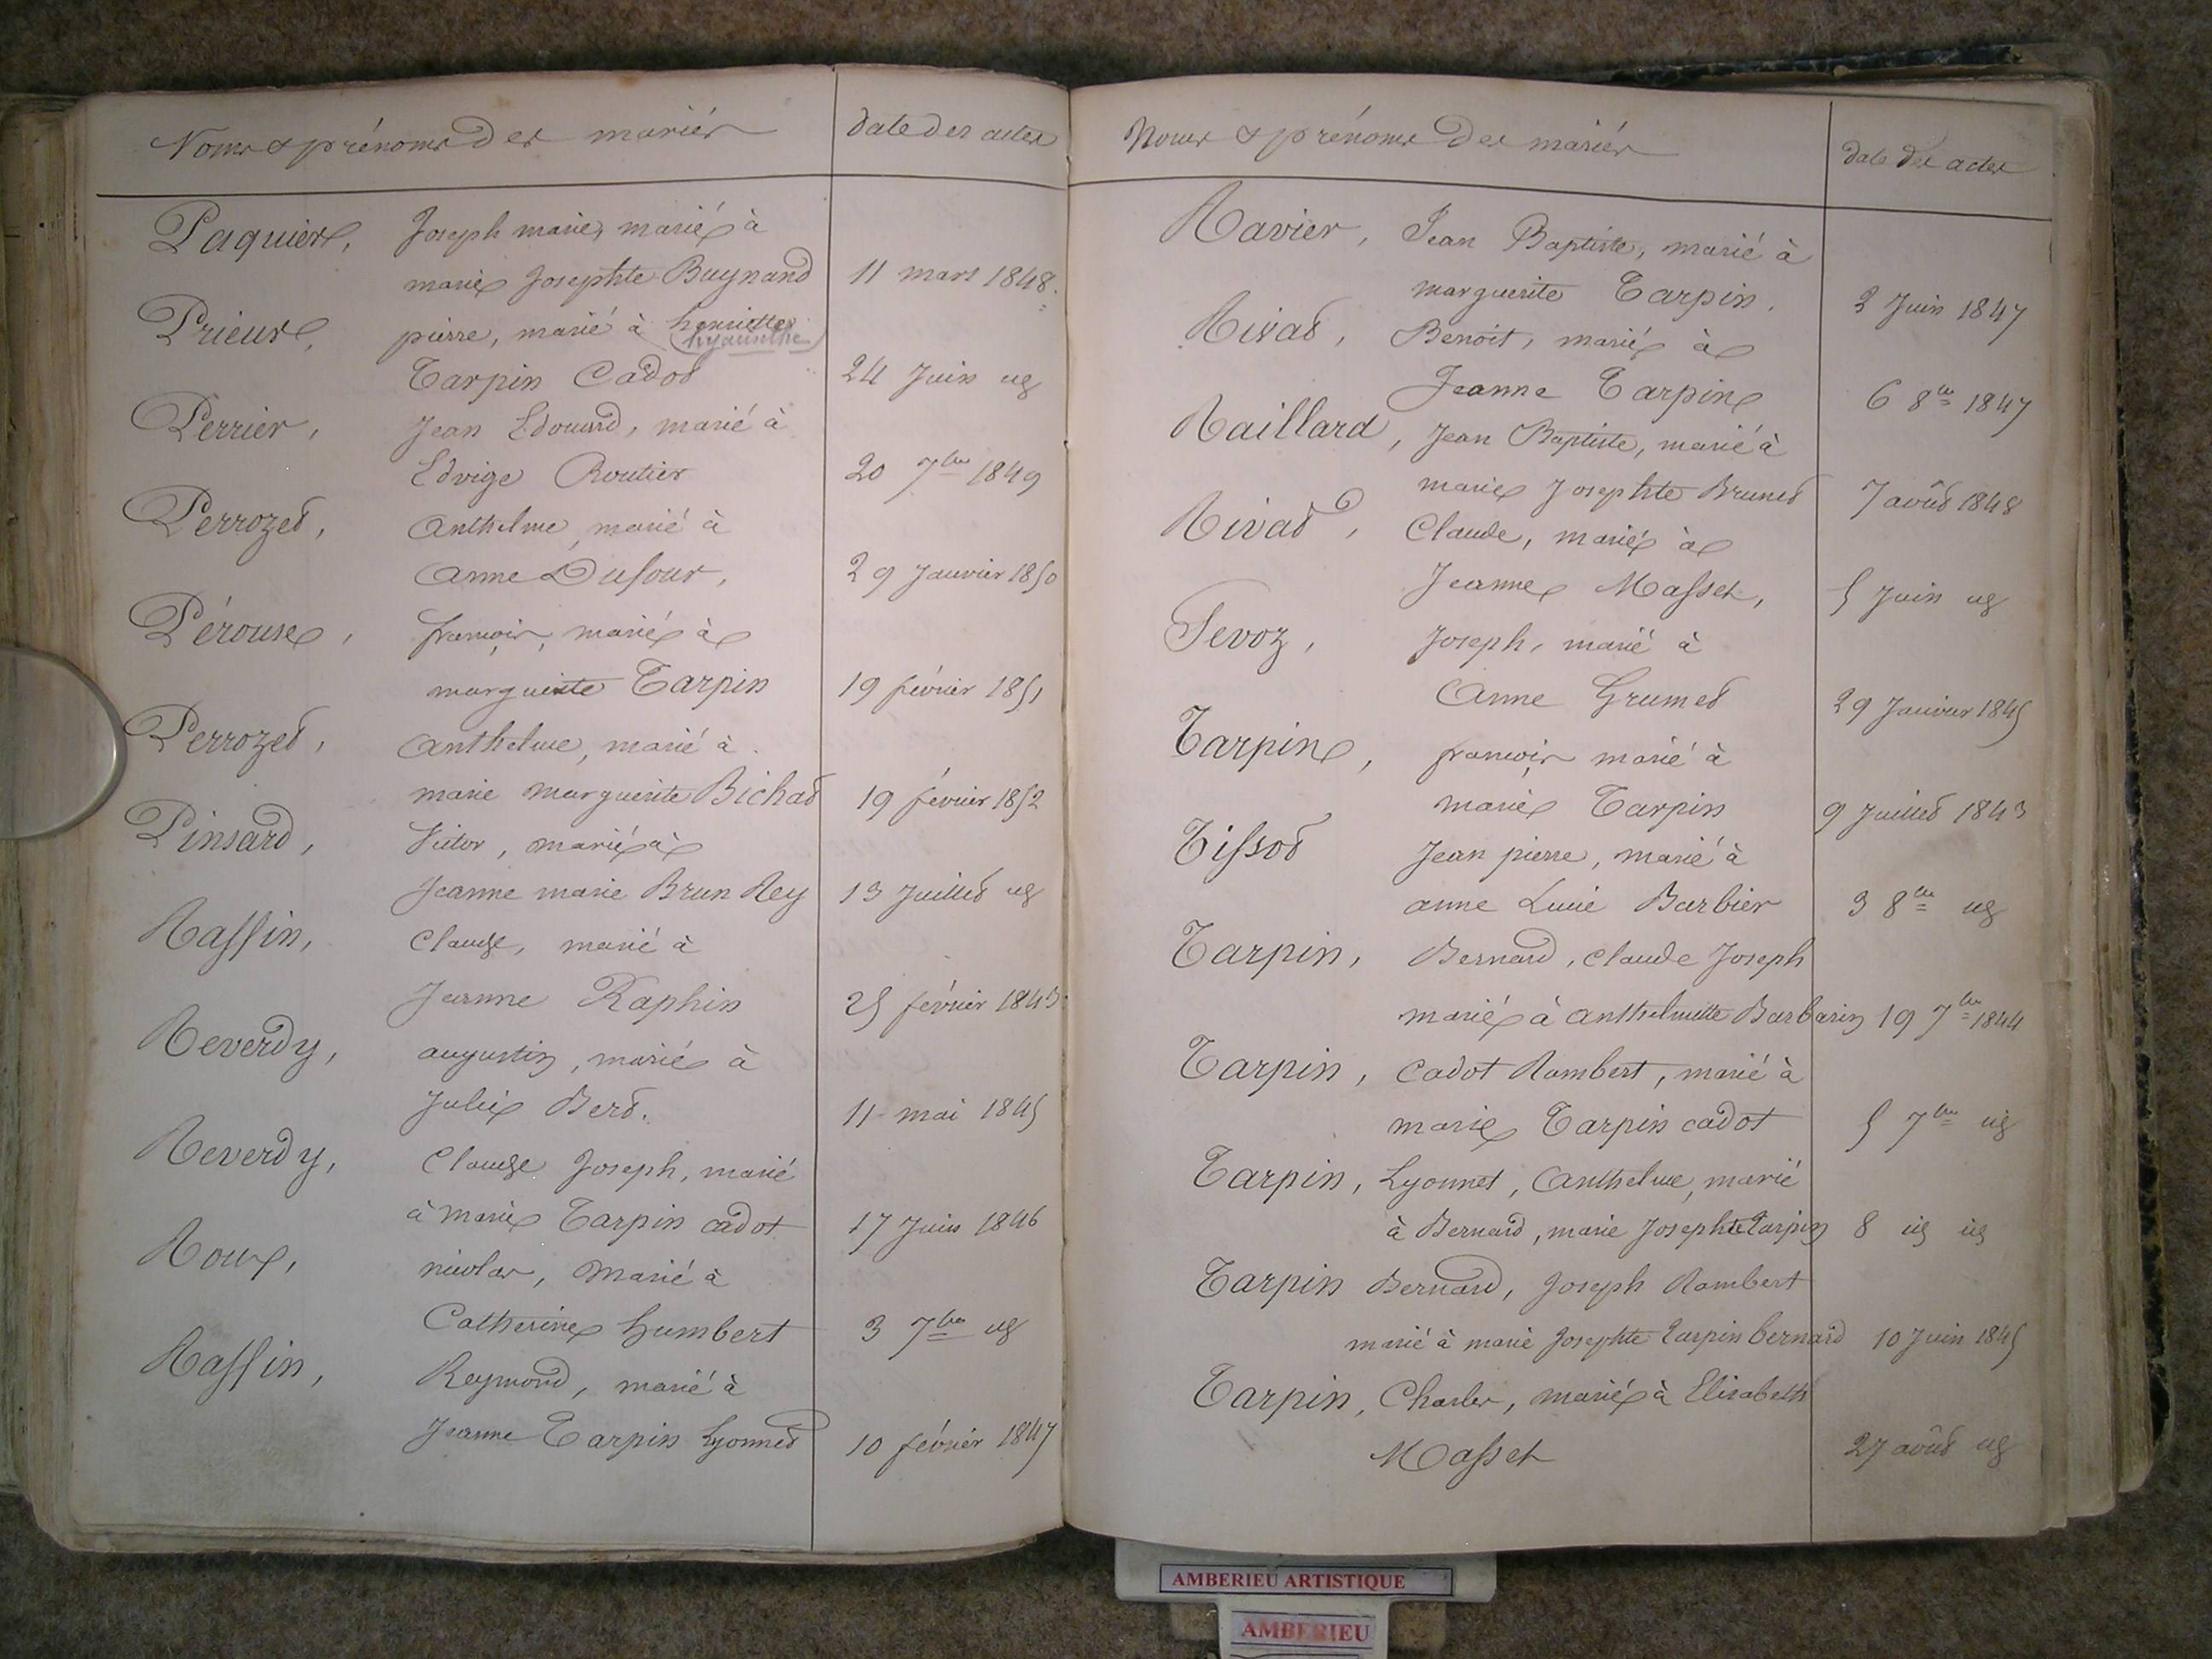 Noms & prénoms des mariés
date des actes
Paquier, Joseph marie, marié à
marie Josephte Buynand 11 mars 1848.
Prieur, pierre, marié à henriette
(hyacinthe)
Tarpin Cadot 24 Juin id
Perrier, Jean Edouard, marié à
Edvige Routier 20 7bre 1849
Perrozet, Anthelme, marié à
Anne Dufour, 29 Janvier 1850
Pérouse, françois, marié à
marguerite Tarpin 19 février 1851
Perrozet, Anthelme, marié à
marie marguerite Bichat 19 février 1852
Pinsard, Victor, marié à
Jeanne marie Brun Rey 13 Juillet id
Raffin, Claude, marié à
Jeanne Raphin 25 février 1843
Reverdy, augustin, marié à
Julie Bert. 11 mai 1845
Reverdy, Claude Joseph, marié
à marie Tarpin cadot 17 Juin 1846
Roux, nicolas, marié à
Catherine humbert 3 7bre id
Raffin, Reymond, marié à
Jeanne Tarpin Lyonnet 10 février 1847
Noms & prénoms des mariés
date des actes
Ravier, Jean Baptiste, marié à
marguerite Tarpin. 2 Juin 1847
Rivat, Benoit, marié à
Jeanne Tarpin 6 8bre 1847
Raillard, Jean Baptiste, marié à
marie Josephte Brunet 7 août 1848
Rivat, Claude, marié à
Jeanne Masset, 5 Juin id
Tevoz, Joseph, marié à
Anne Grumet 29 Janvier 1845
Tarpin, françois marié à
marie Tarpin 9 Juillet 1843
Tissot Jean pierre, marié à
anne Lucie Barbier 3 8bre id
Tarpin, Bernard, Claude Joseph
marié à anthelmette Barbarin 19 7bre 1844
Tarpin, cadot Rambert, marié à
marie Tarpin cadot 5 7bre id
Tarpin, Lyonnet, Anthelme, marié
à Bernard, marie Josephte Tarpin 8 id id
Tarpin Bernard, Joseph Rambert
marié à marie Josephte Tarpin bernard 10 Juin 1845
Tarpin, Charles, marié à Elisabeth
Masset 27 août id
AMBERIEU ARTISTIQUE
AMBERIEU